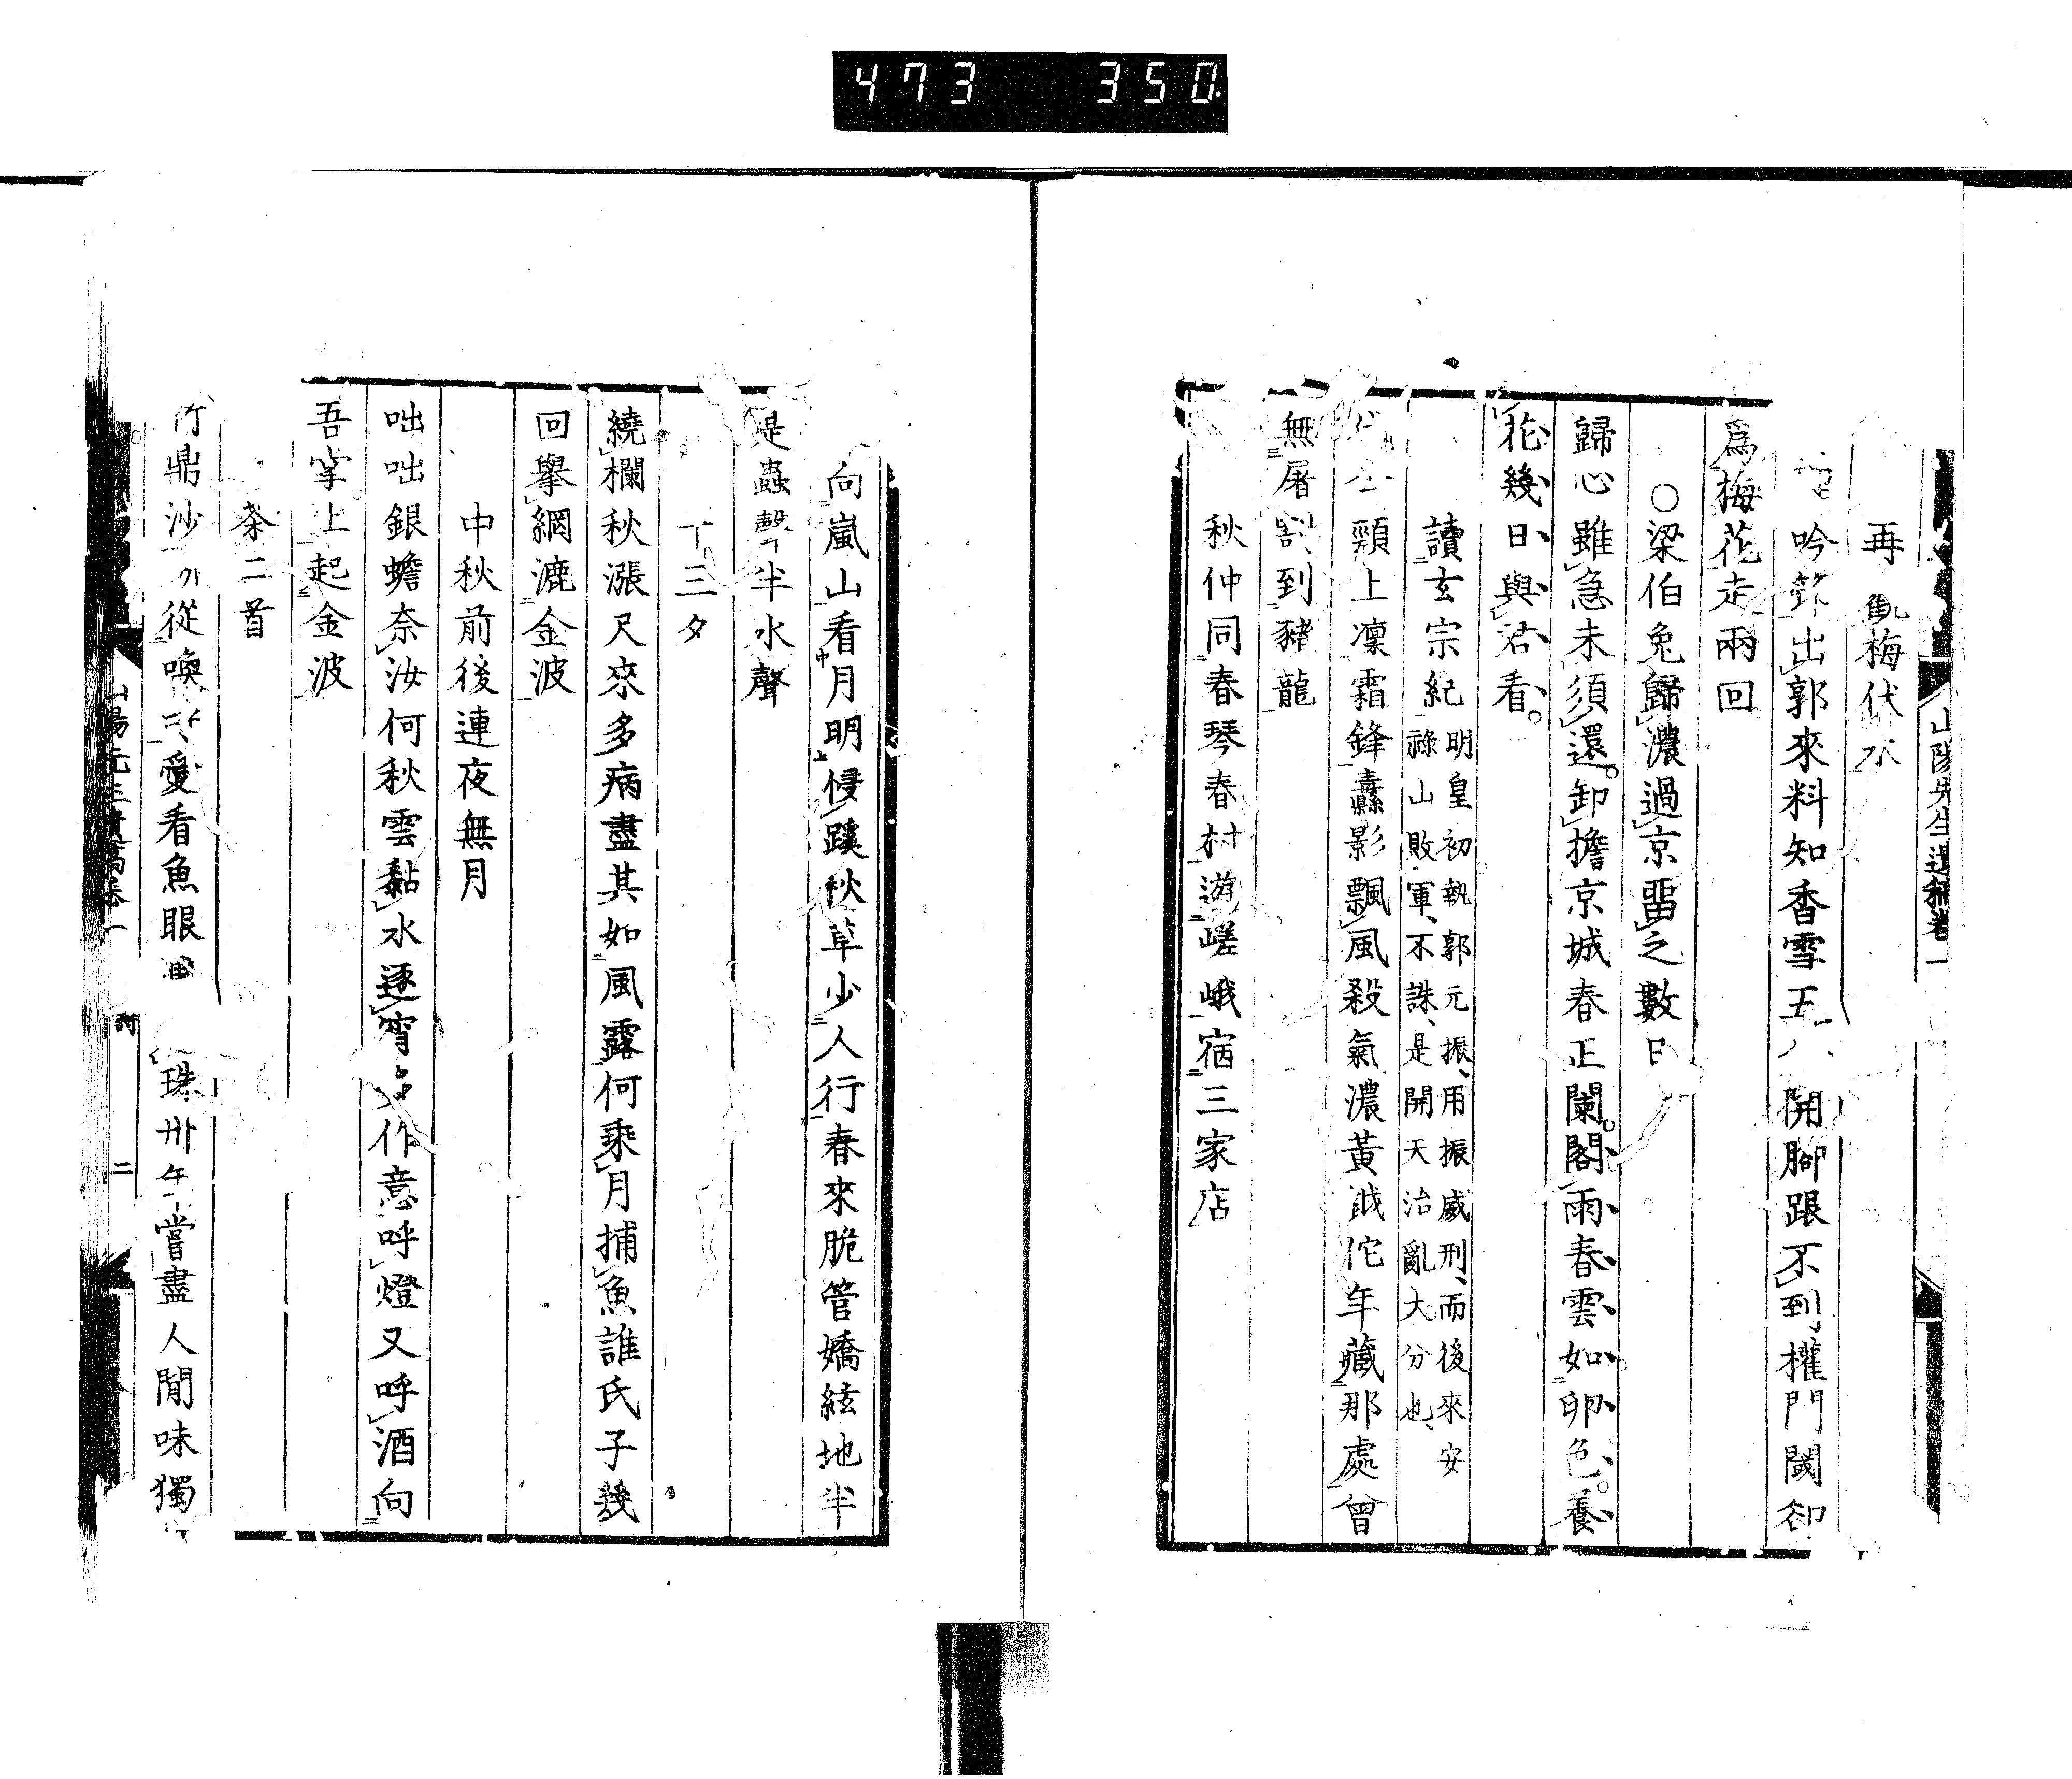 473 350
山陽先生遺稿卷一
再觀梅伏水
吟筇出郭來料知香雪五 開腳跟不到權門閾卻
爲梅花走兩回
○梁伯兔歸濃過京畱之數日
歸心雖急未須還卸擔京城春正闌閣雨春雲如卵色養
花幾日與君看
讀玄宗紀
明皇初執郭元振用振威刑而後來安
祿山敗軍不誅是開天治亂大分也
頸上凜霜鋒纛影飄風殺氣濃黃鉞佗年藏那處曾
無屠割到豬龍
秋仲同春琴春村遊嵯峨宿三家店
向嵐山看月明侵蹊秋草少人行春來脆管嬌絃地半
是蟲聲半水聲
三夕
繞欄秋漲尺來多病盡其如風露何乘月捕魚誰氏子幾
回擧網漉金波
中秋前後連夜無月
咄咄銀蟾奈汝何秋雲黏水逐宵多作意呼燈又呼酒向
吾掌上起金波
茶二首
竹鼎沙 從喚 愛看魚眼 珠卅年嘗盡人間味獨
山陽先生遺稿卷一
詩
二